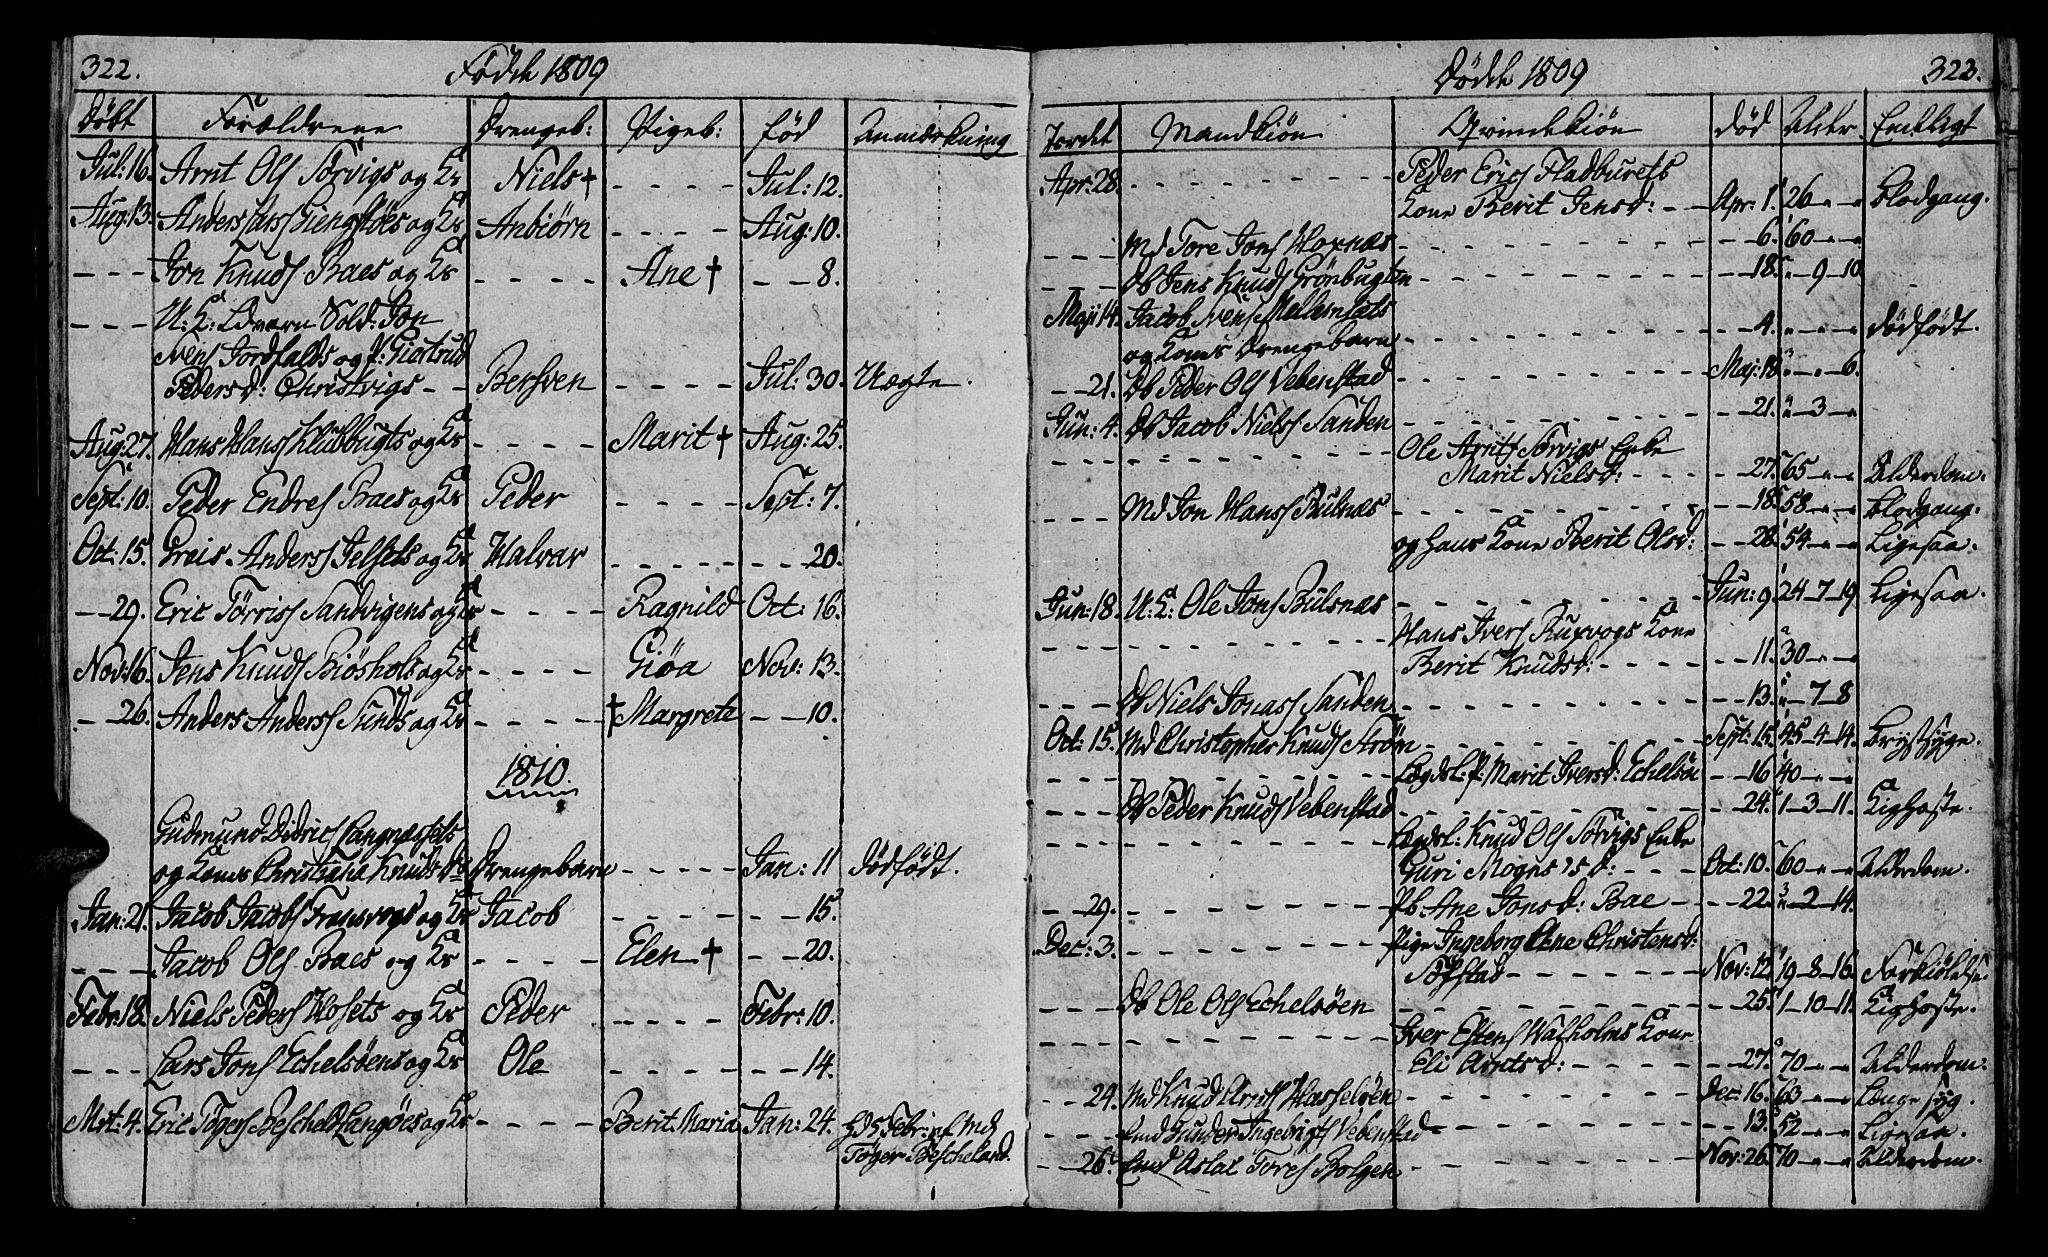 322. Födde 1809
Döbt Forældrene Drengeb: Pigeb: född Anmærkning
Jul: 16. Arnt Ols Sørvigs og K: Niels † - - - - Jul: 12.
Aug: 13. Anders Lars Giengstöes og K: Anbiørn - - - - Aug: 10.
- - - Jon Knuds Baes og K: - - - - Ane † - - 8.
- - - U: K: Ldværn Sold: Jon
Svens Jordfalds og P: Giertrud
Peders d: Christvigs - - Bersven - - - - Jul: 30. Uægte.
Aug: 27. Hans Hans Klubbugts og K: - - - - Marit † Aug: 25.
Sept: 10. Peder Endres Baes og K: Peder - - - - Sept: 7.
Oct: 15. Greis Anders Jelsets og K: Halvar - - - - - - 20.
- - 29. Eric Tørris Sandvigens og K: - - - - Ragnild Oct: 16.
Nov: 16. Jens Knuds Biøshols og K: - - - - Giøa Nov: 13.
- - 26. Anders Anders Sunds og K: - - - - - † Margrete - - 10.
1810.
Gudmund Didrics Langnæssets
og Kones Christiana Knuds d: Drengebarn - - - - - Jan: 11 dödfödt.
Jan: 21. Jacob Jacobs Fransvogs og K: Jacob - - - - - - 15.
- - - Jacob Ols Baes og K: - - - - Elen † - - 20.
Febr: 18. Niels Peders Hosets og K: Peder - - - - Febr: 10.
- - - Lars Jons Echelsöens og K: Ole - - - - - - 14.
Mrt: 4. Eric Tøgers Beschelds Langöes og K: - - - - Berit Maria Jan: 24. Hd 5 Febr: af Md
Tøger Bescheland.
Dödde 1809 323.
Jordet Mandkiön Qvindekiön död Alder Endeligt
Apr: 28. - - - - - - - Peder Erics Fladsurets
Kone Berit Jens d: - - Apr: 1. 26 - - Blodgang.
- - - Md Tore Jons Hoxnæs - - - - - - - - 6. 60 - -
- - - Db Jens Knuds Grönbugten - - - - - - 18. " - 9 - 10
Maji 14. Jacob Svens Mellemsæts
og Kones Drengebarn - - - - - - - - 4. " - " - " dödfödt.
- - 21. Db Peder Ols Vebenstad - - - - - - - Maj: 18. " - " - 6.
Jun: 4. Db Jacob Niels Sanden - - - - - - - - 21. " - 3 - "
- - - - - - - - - Ole Arnts Sørvigs Enke
Marit Niels d: - - - - 27. 65 - - Alderdom.
- - - Md Jon Hans Bulnæs - - - - - - - - 18. 58 - - Blodgang.
og hans Kone Berit Ols d: - - 28. 54 - - Ligesaa.
Jun: 18. U: K: Ole Jons Bulsnæs - - - - - - - Jun: 9. 24 - 7 - 19 Ligesaa.
- - - - - - - - - Hans Ivers Ruxvogs Kone
Berit Knuds d: - - - - - - 11. 30 - -
- - - Db Niels Jonas Sanden - - - - - - - - 13. " - 7 - 8
Oct: 15. Md Christopher Knuds Strøm - - - - - - - Sept: 15. 45 - 4 - 14. Brystsyge.
- - - - - - - - - Lægdsl: P: Marit Ivers d: Echelsöe - - 16 40 - -
- - - Db Peder Knuds Vebenstad - - - - - - - - 24. 1 - 3 - 11. Kighoste.
- - - - - - - - - Lægdsl: Knud Ols Sørvigs Enke
Guri Mogns d: - - - Oct: 10. 60 - - Alderdom.
- - 29. - - - - - - - Pb Ane Jons d: Bae - - - - 22. " - 2 - 14.
Dec: 3. - - - - - - - Pige Ingeborg Ane Christens d:
Tøfstad - - - - - - Nov: 12. 19 - 8 - 16. Forkiölelse.
- - - Db Ole Ols Echelsöen - - - - - - - - 25. 1 - 10 - 11. Kighoste.
- - - - - - - - - Iver Estens Walholms Kone
Eli Arnts d: - - - - - - 27. 70 - - Alderdom.
- - 24. Md Knud Arnts Hasselöen - - - - - - - Dec: 16. 63 - - Længe syg.
- - - Emd Gunder Ingebrigts Vebenstad - - - - - - 13. 52 - - Ligesaa.
- - 26. Emd Aslac Tores Bolgen - - - - - - Nov: 26. 70 - - Alderdom.